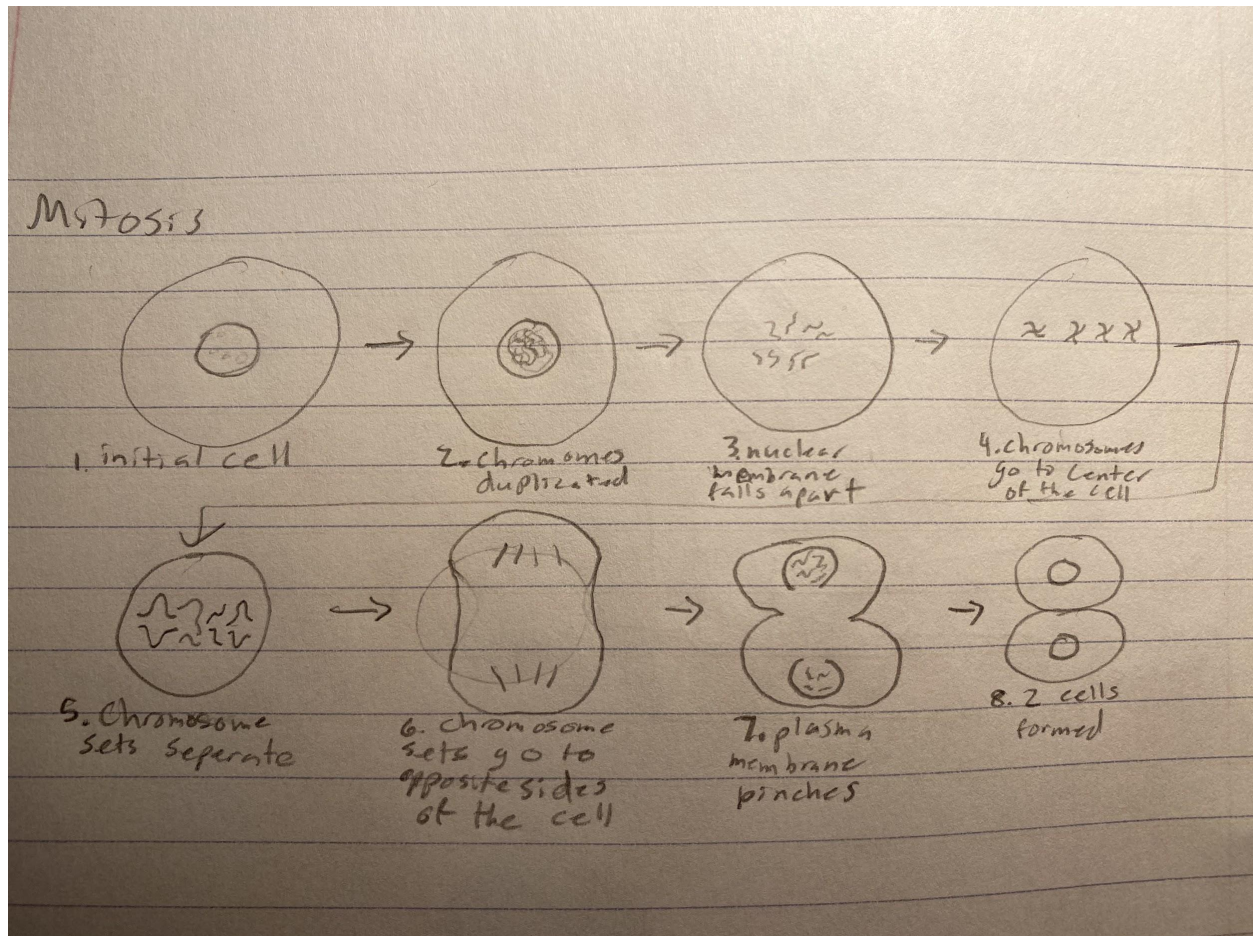 Mitosis
1. initial cell
2. chromomes
duplicated
3. nuclear
membrane
falls apart
4. chromosomes
go to center
of the cell
5. Chromosome
sets seperate
6. chromosome
sets go to
opposite sides
of the cell
7. plasma
membrane
pinches
8. 2 cells
formed